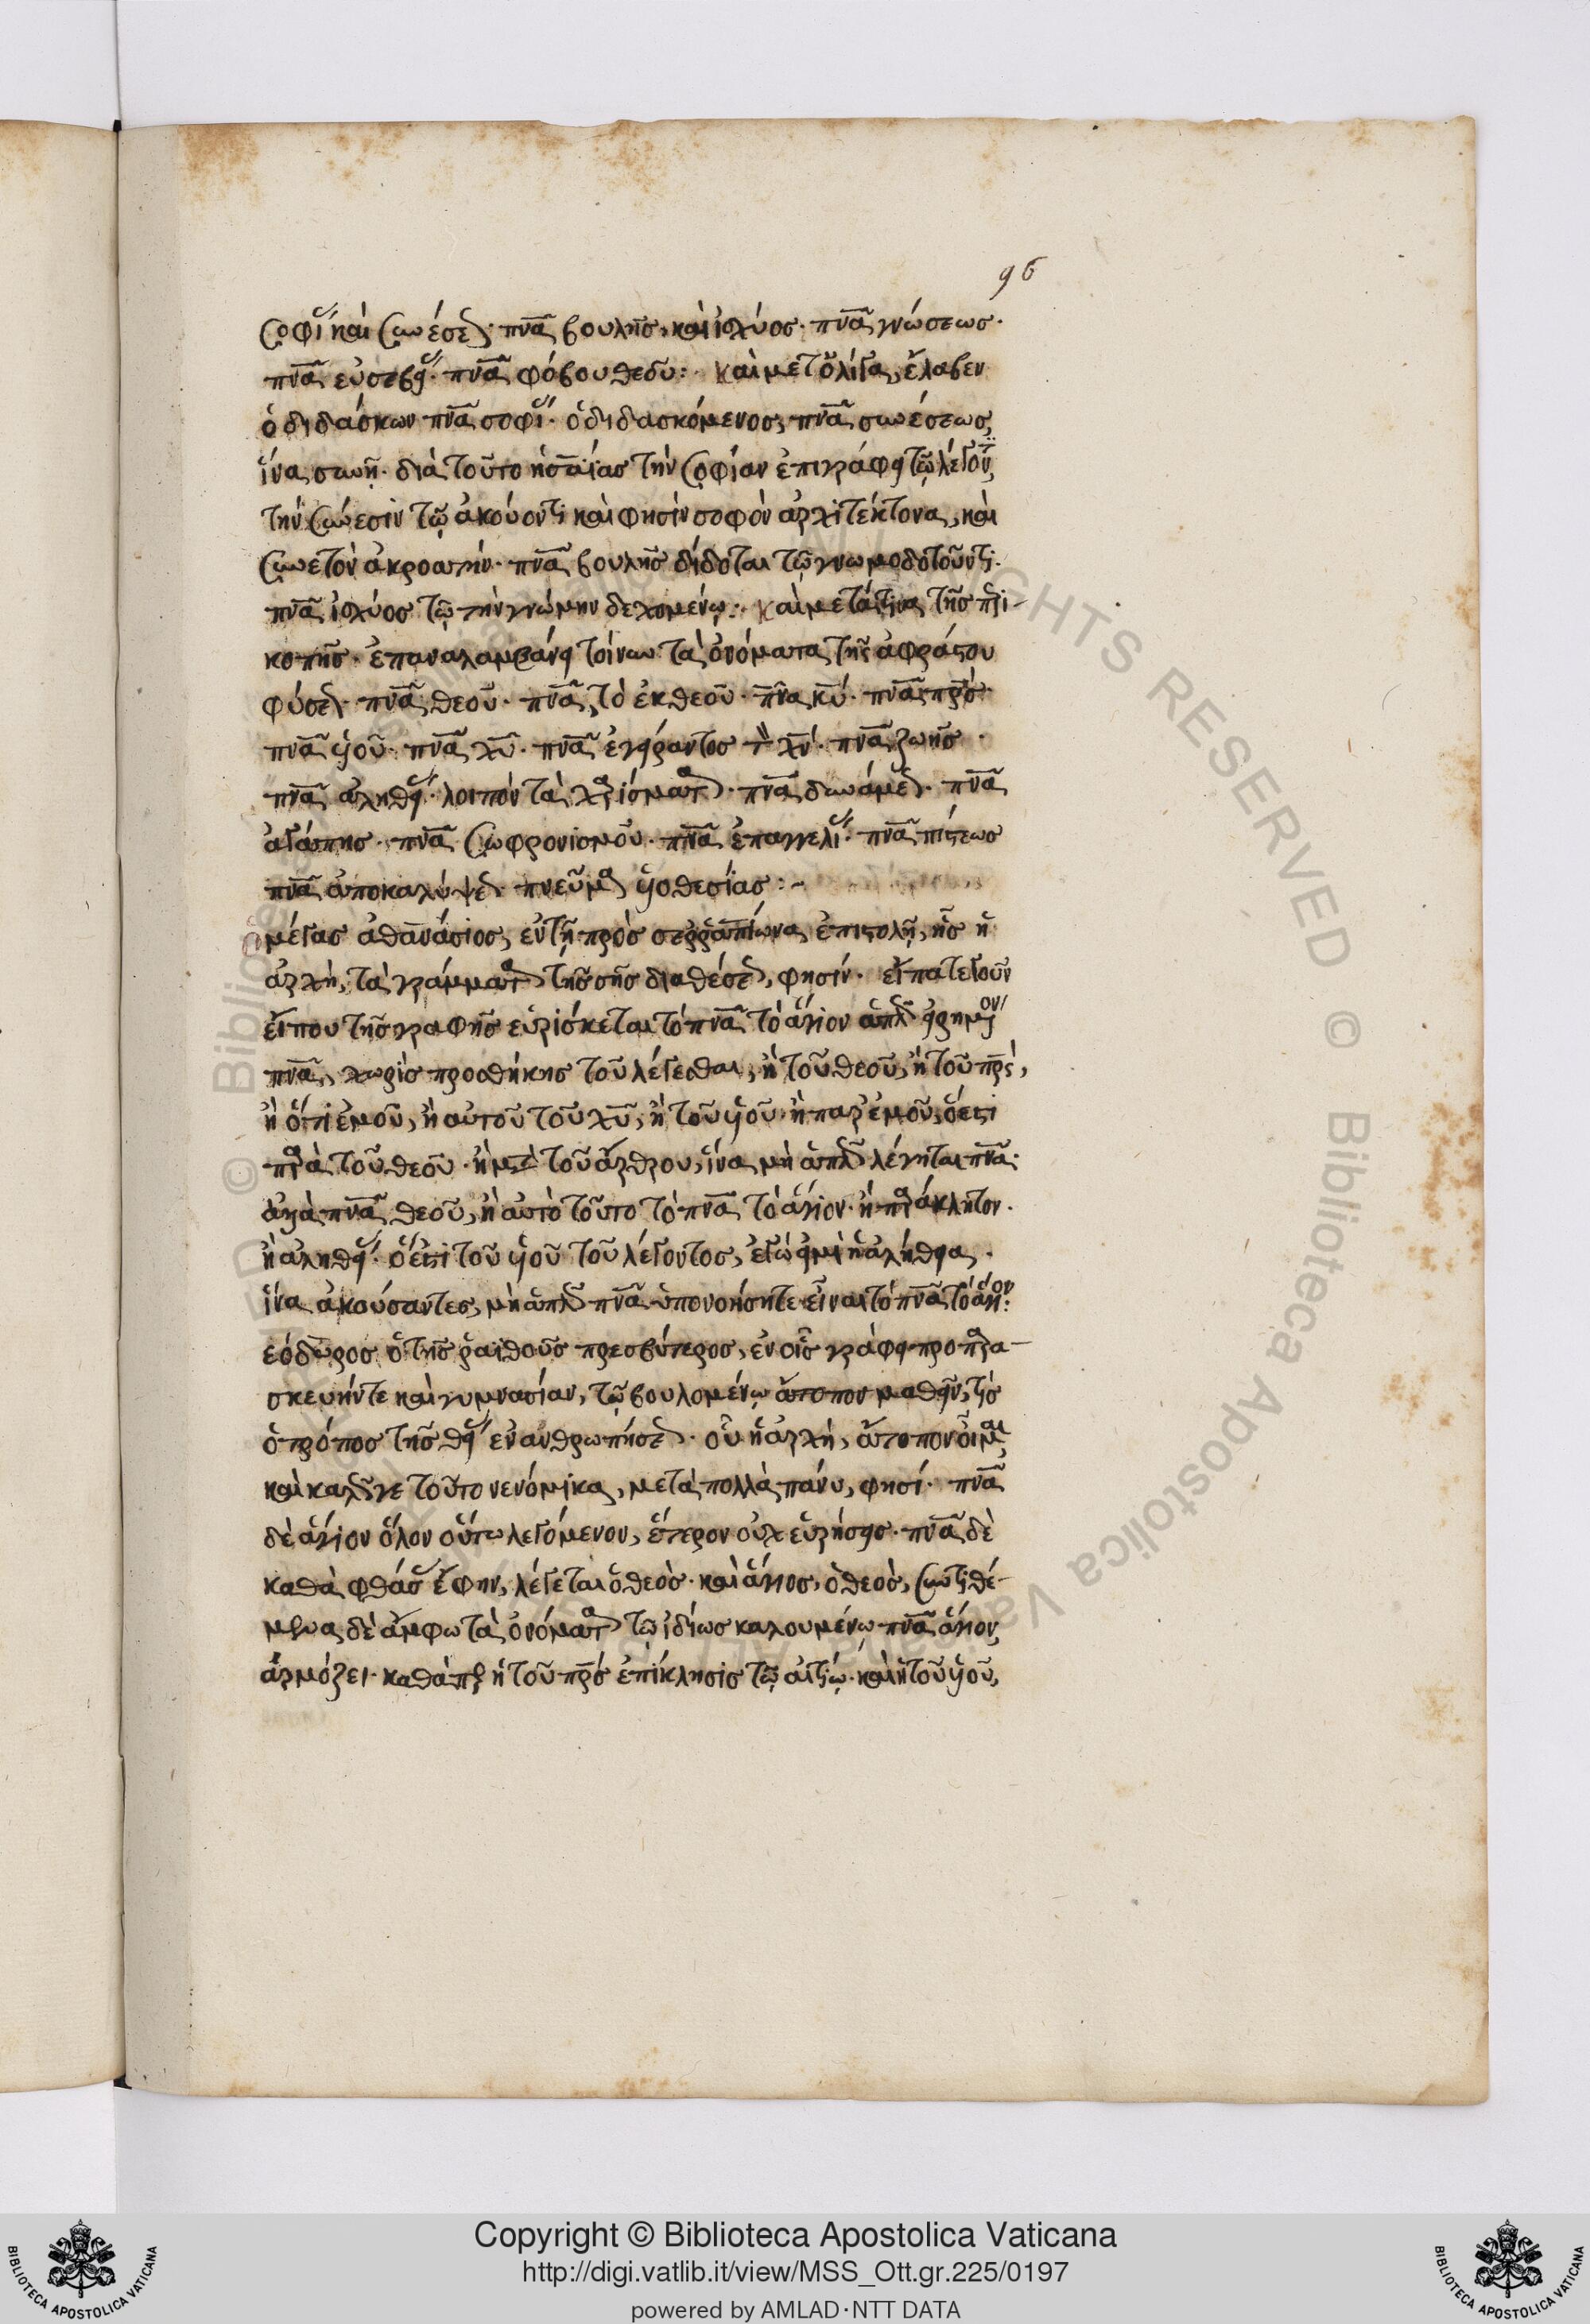 96
σοφί(ας) καὶ συνέσεως· πν̅α βουλῆς, καὶ ἰσχύος· πν̅α γνώσεως·
πν̅α εὐσεβεί(ας)· πν̅α φόβου θεοῦ:· καὶ μετ' ὀλίγα, ἔλαβεν
ὁ διδάσκων πν̅α σοφί(ας)· ὁ διδασκόμενος, πν̅α συνέσεως,
ἵνα συνῇ· διὰ τοῦτο ἡσαΐας τὴν σοφίαν ἐπιγράφει τῷ λέγοντ(ι),
τὴν σύνεσιν τῷ ἀκούοντι καὶ φησὶν σοφὸν ἀρχιτέκτονα, καὶ
συνετὸν ἀκροατήν· πν̅α βουλῆς δίδοται τῷ γνωμοδοτοῦντι·
πν̅α ἰσχύος τῷ τὴν γνώμην δεχομένῳ:· καὶ μετά τινα τῆς περι-
κοπῆς· ἐπαναλαμβάνει τοίνυν τὰ ὀνόματα τῆς ἀφράστου
φύσεως· πν̅α θεοῦ· πν̅α, τὸ ἐκ θεοῦ· πν̅α κ̅υ· πν̅α π̅ρς·
πν̅α υἱοῦ· πν̅α χ̅υ· πν̅α ἐγείραντος τὸν χ̅ν· πν̅α ζωῆς·
πν̅α ἀληθεί(ας)· λοιπὸν τὰ χαρίσματα· πν̅α δυνάμεως· πν̅α
ἀγάπης· πν̅α σωφρονισμοῦ· πν̅α ἐπαγγελί(ας)· πν̅α πίστεως
πν̅α ἀποκαλύψεως· πνεῦμα υἱοθεσίας:~
Ὁ μέγας ἀθανάσιος, ἐν τῇ πρὸς σερραπίωνα ἐπιστολῇ, ἧς ἡ
ἀρχὴ, τὰ γράμματα τῆς σῆς διαθέσεως, φησίν· εἴπατε γοῦν
εἴ που τῆς γραφῆς εὑρίσκεται τὸ πν̅α τὸ ἅγιον ἁπλῶς εἰρημένον
πν̅α, χωρὶς προσθήκης τοῦ λέγεσθαι, ἢ τοῦ θεοῦ, ἢ τοῦ π̅ρς,
ἢ ὅτι ἐμοῦ, ἢ αὐτοῦ τοῦ χ̅υ, ἢ τοῦ υἱοῦ· ἢ παρ' ἐμοῦ, ὅ ἐστι
παρὰ τοῦ θεοῦ· ἢ μετὰ τοῦ ἄρθρου, ἵνα μὴ ἁπλῶς λέγηται πν̅α·
ἀλλὰ πν̅α θεοῦ, ἢ αὐτὸ τοῦτο τὸ πν̅α τὸ ἅγιον· ἢ παράκλητον·
ἢ ἀληθεί(ας)· ὅ ἐστι τοῦ υἱοῦ τοῦ λέγοντος, ἐγώ εἰμι ἡ ἀλήθεια·
ἵνα ἀκούσαντες, μὴ ἁπλῶς πν̅α ὑπονοήσητε εἶναι τὸ πν̅α τὸ ἅγιον:
εόδωρος ὁ τῆς ῥαϊθοῦς πρεσβύτερος, ἐν οἷς γράφει προπαρα-
σκευήν τε καὶ γυμνασίαν, τῷ βουλομένῳ ἄτοπον μαθεῖν, τίς
ὁ τρόπος τῆς θεί(ας) ἐνανθρωπήσεως· οὗ ἡ ἀρχὴ, ἄτοπον οἶμαι,
καὶ καλῶς γε τοῦτο νενόμικα, μετὰ πολλὰ πάνυ, φησί· πν̅α
δὲ ἅγιον ὅλον οὕτω λεγόμενον, ἕτερον οὐχ εὑρήσεις· πν̅α δὲ
καθὰ φθάσας ἔφην, λέγεται ὁ θεὸς· καὶ ἅγιος, ὁ θεὸς, συντιθέ-
μενα δὲ ἄμφω τὰ ὀνόματα τῷ ἰδίως καλουμένῳ πν̅α ἅγιον,
ἁρμόζει· καθάπερ ἡ τοῦ π̅ρς ἐπίκλησις τῷ αἰτίῳ· καὶ ἡ τοῦ υἱοῦ,
© Biblioteca Apostolica Vaticana ALL RIGHTS RESERVED
Copyright © Biblioteca Apostolica Vaticana
http://digi.vatlib.it/view/MSS_Ott.gr.225/0197
powered by AMLAD·NTT DATA
BIBLIOTECA APOSTOLICA VATICANA
BIBLIOTECA APOSTOLICA VATICANA